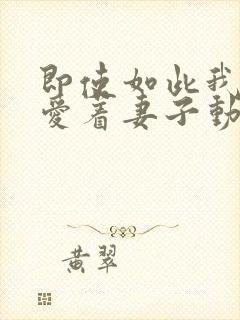 即使如此我
愛着妻子動
黄翠